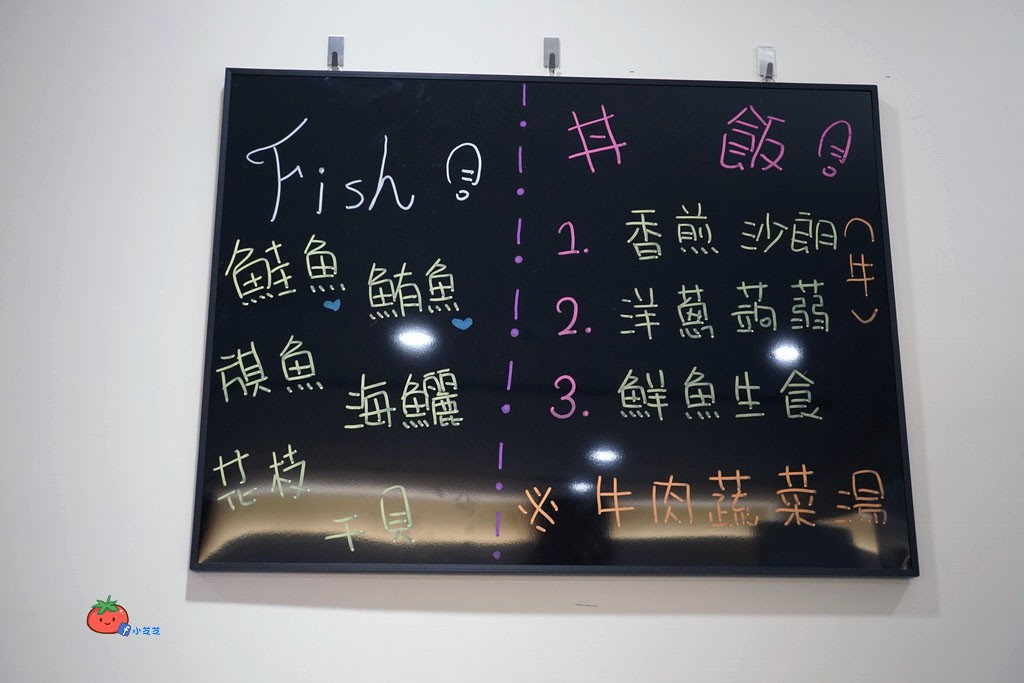 Fish!
鮭魚
鮪魚
旗魚
海鱺
花枝
干貝
丼 飯!
1. 香煎 沙朗(牛)
2. 洋蔥 蒟蒻
3. 鮮魚生食
※ 牛肉蔬菜湯
小芝芝